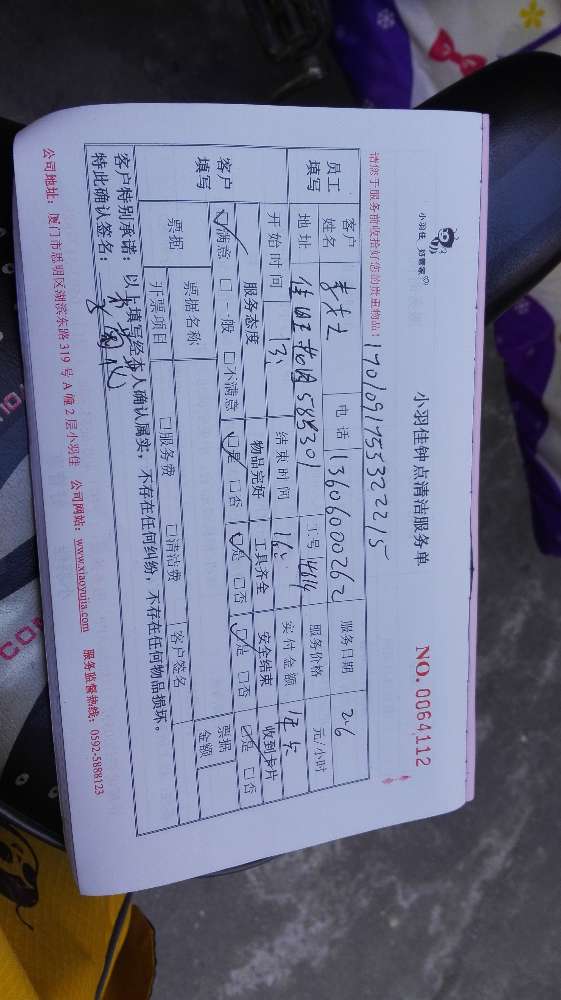 小羽佳 好管家
小羽佳钟点清洁服务单
NO. 0064112
请您于服务前收拾好您的贵重物品!
17010917553222215
员工填写 客户姓名 李先生 电话 13606000262 服务日期 26
地址 585301 工号 14614 服务价格 元/小时
开始时间 13: 结束时间 16: 实付金额 年卡
客户填写 服务态度 物品完好 工具齐全 安全结束 收到卡片
☑满意 □一般 □不满意 ☑是 □否 ☑是 □否 ☑是 □否 ☑是 □否
票据 票据名称 客户签名 票据金额
开票项目 □服务费 □清洁费
客户特别承诺:以上填写经本人确认属实,不存在任何纠纷,不存在任何物品损坏。
特此确认签名:
公司地址:厦门市思明区湖滨东路 319 号 A 幢 2 层小羽佳 公司网站:www.xiaoyujia.com 服务监督热线:0592-5888123